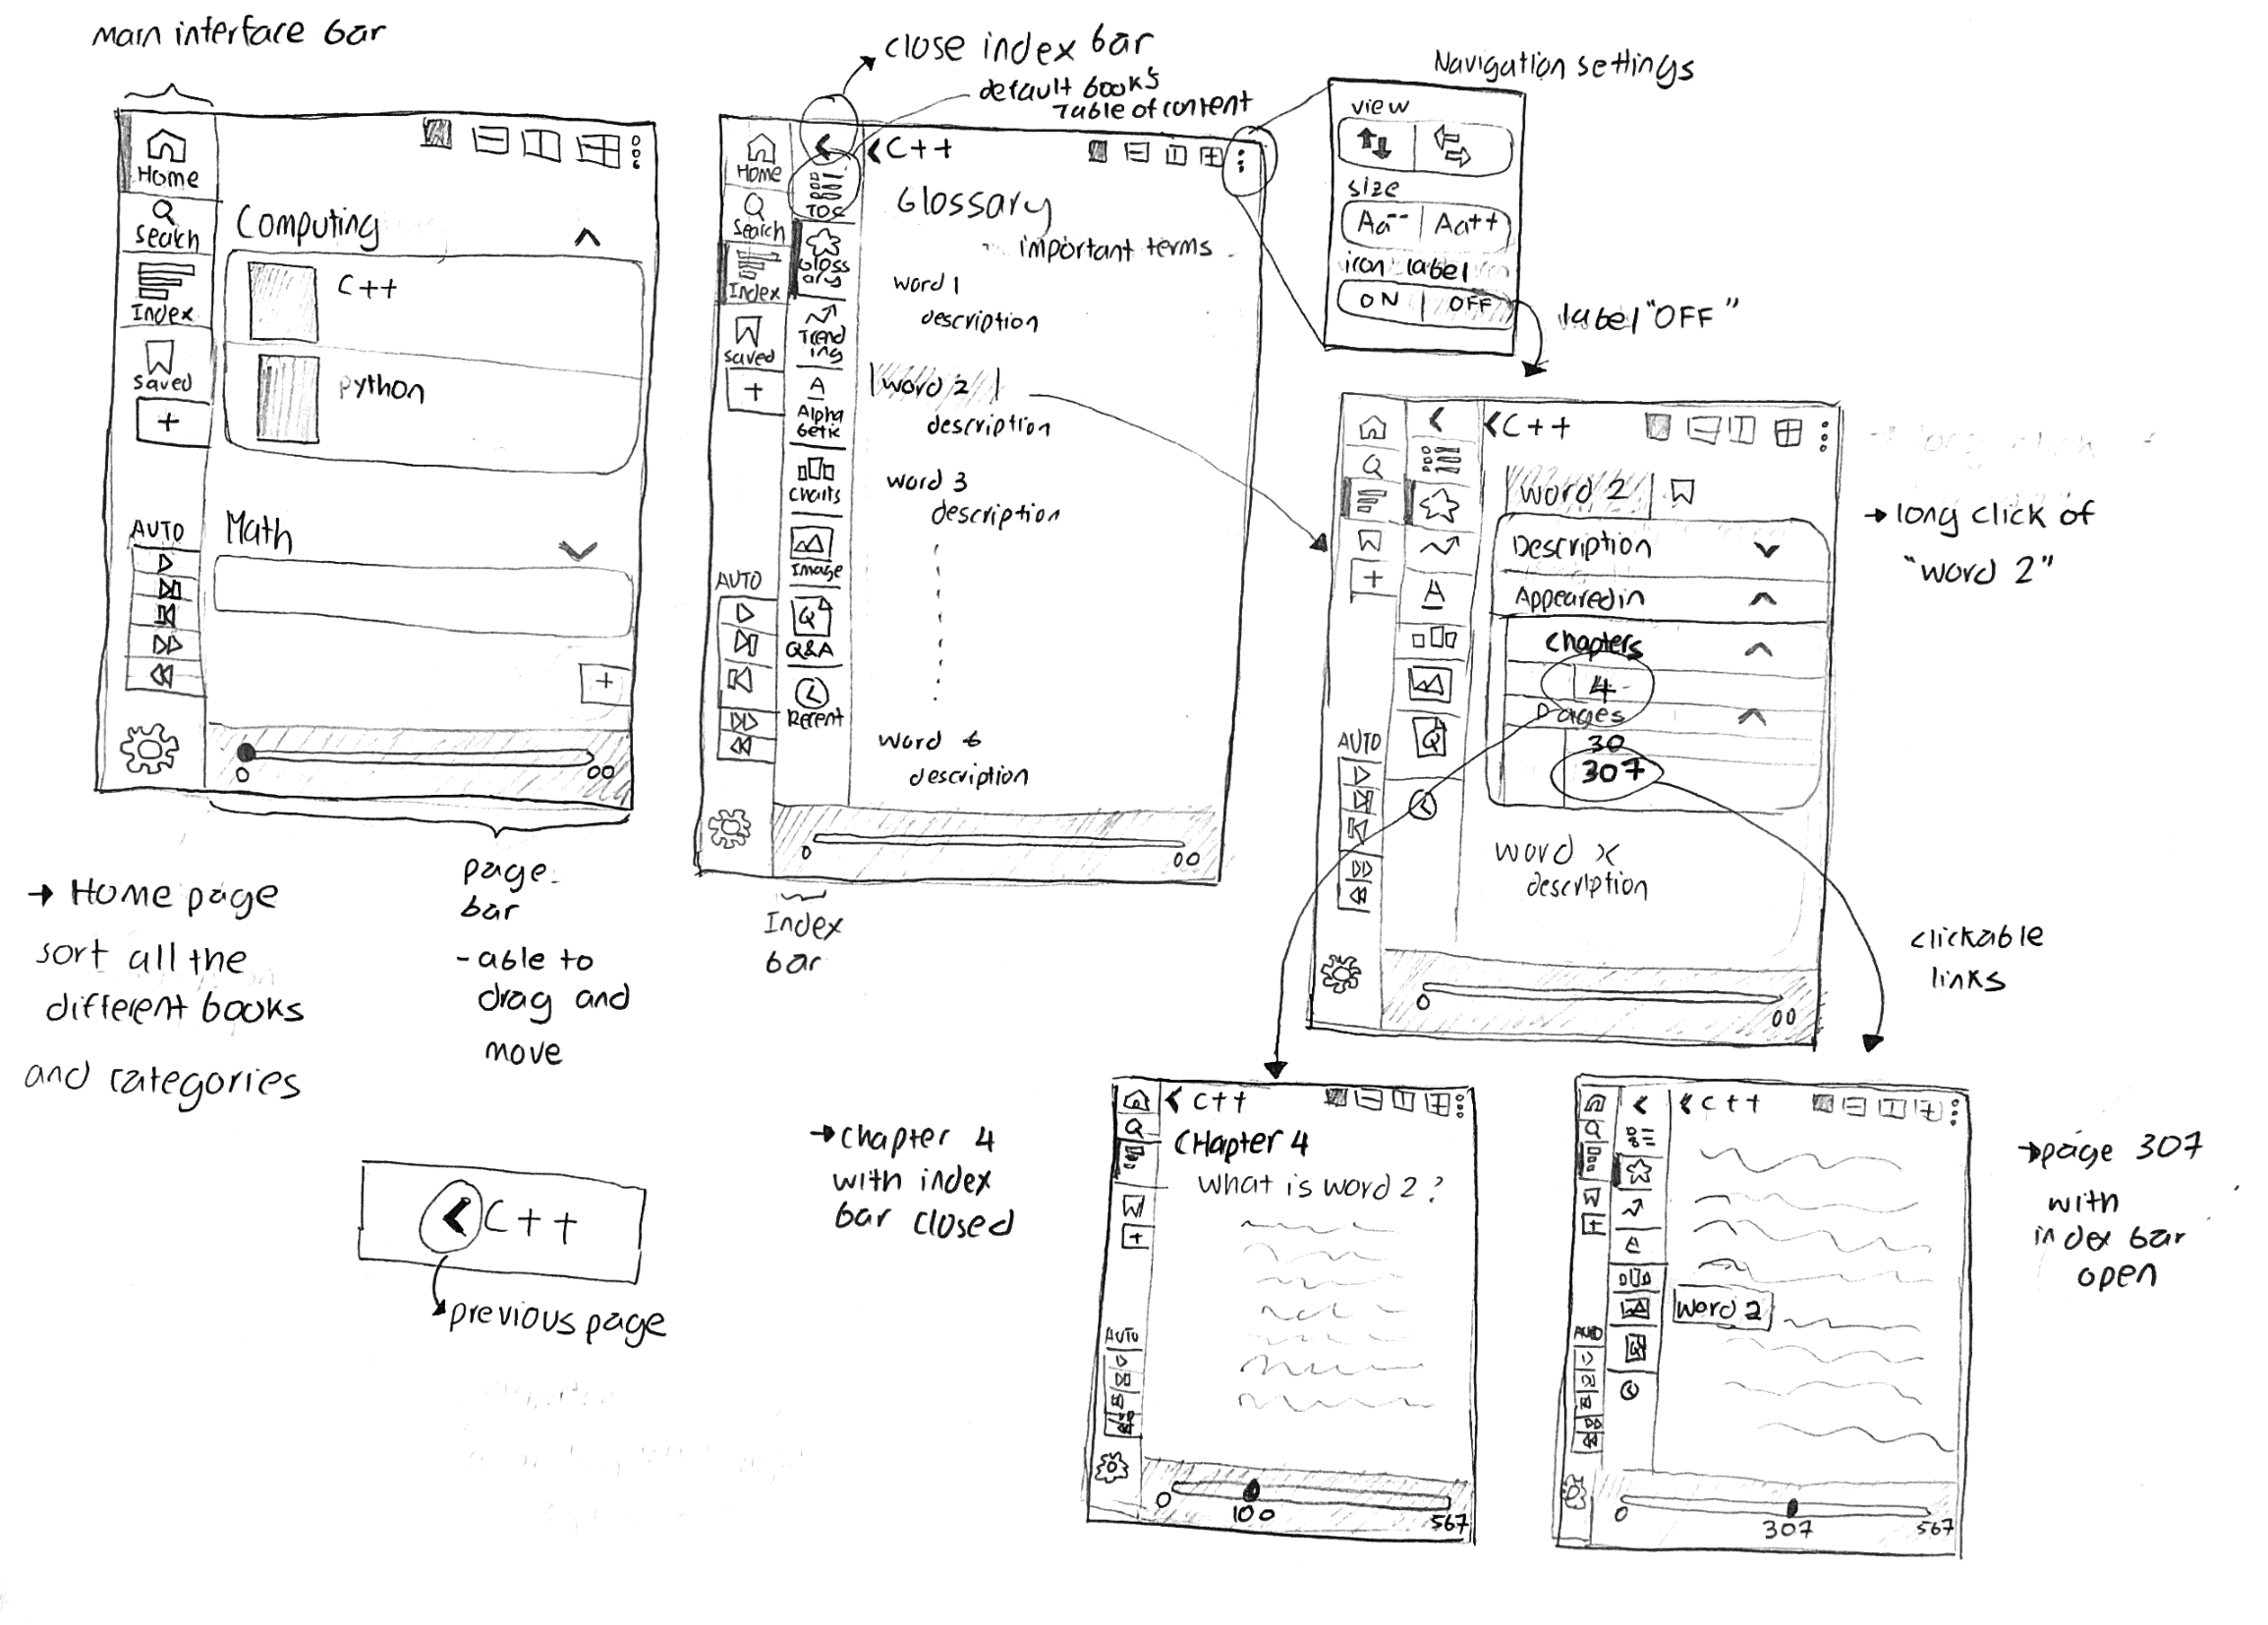 Main interface bar
Home
Search
Index
Saved
+
AUTO
Computing
C++
python
Math
+
0
00
→ Home page
sort all the
different books
and categories
page
bar
- able to
drag and
move
C++
previous page
close index bar
default book's
Table of content
Home
Search
Index
Saved
+
AUTO
TOC
Gloss
ary
Trend
ing
A
Alpha
betic
Charts
Image
Q
Q&A
Recent
C++
Glossary
important terms
word 1
description
word 2
description
word 3
description
word 6
description
0
00
Index
bar
Navigation settings
view
size
Aa-- Aa++
icon label
ON OFF
label "OFF"
+
AUTO
A
Q
C++
word 2
Description
Appeared in
Chapters
4
Pages
30
307
word x
description
0
00
→ long click of
"word 2"
clickable
links
→ Chapter 4
with index
bar closed
+
AUTO
C++
CHapter 4
What is word 2?
0
100
567
+
AUTO
A
Q
C++
word 2
0
307
567
→ page 307
with
index bar
open